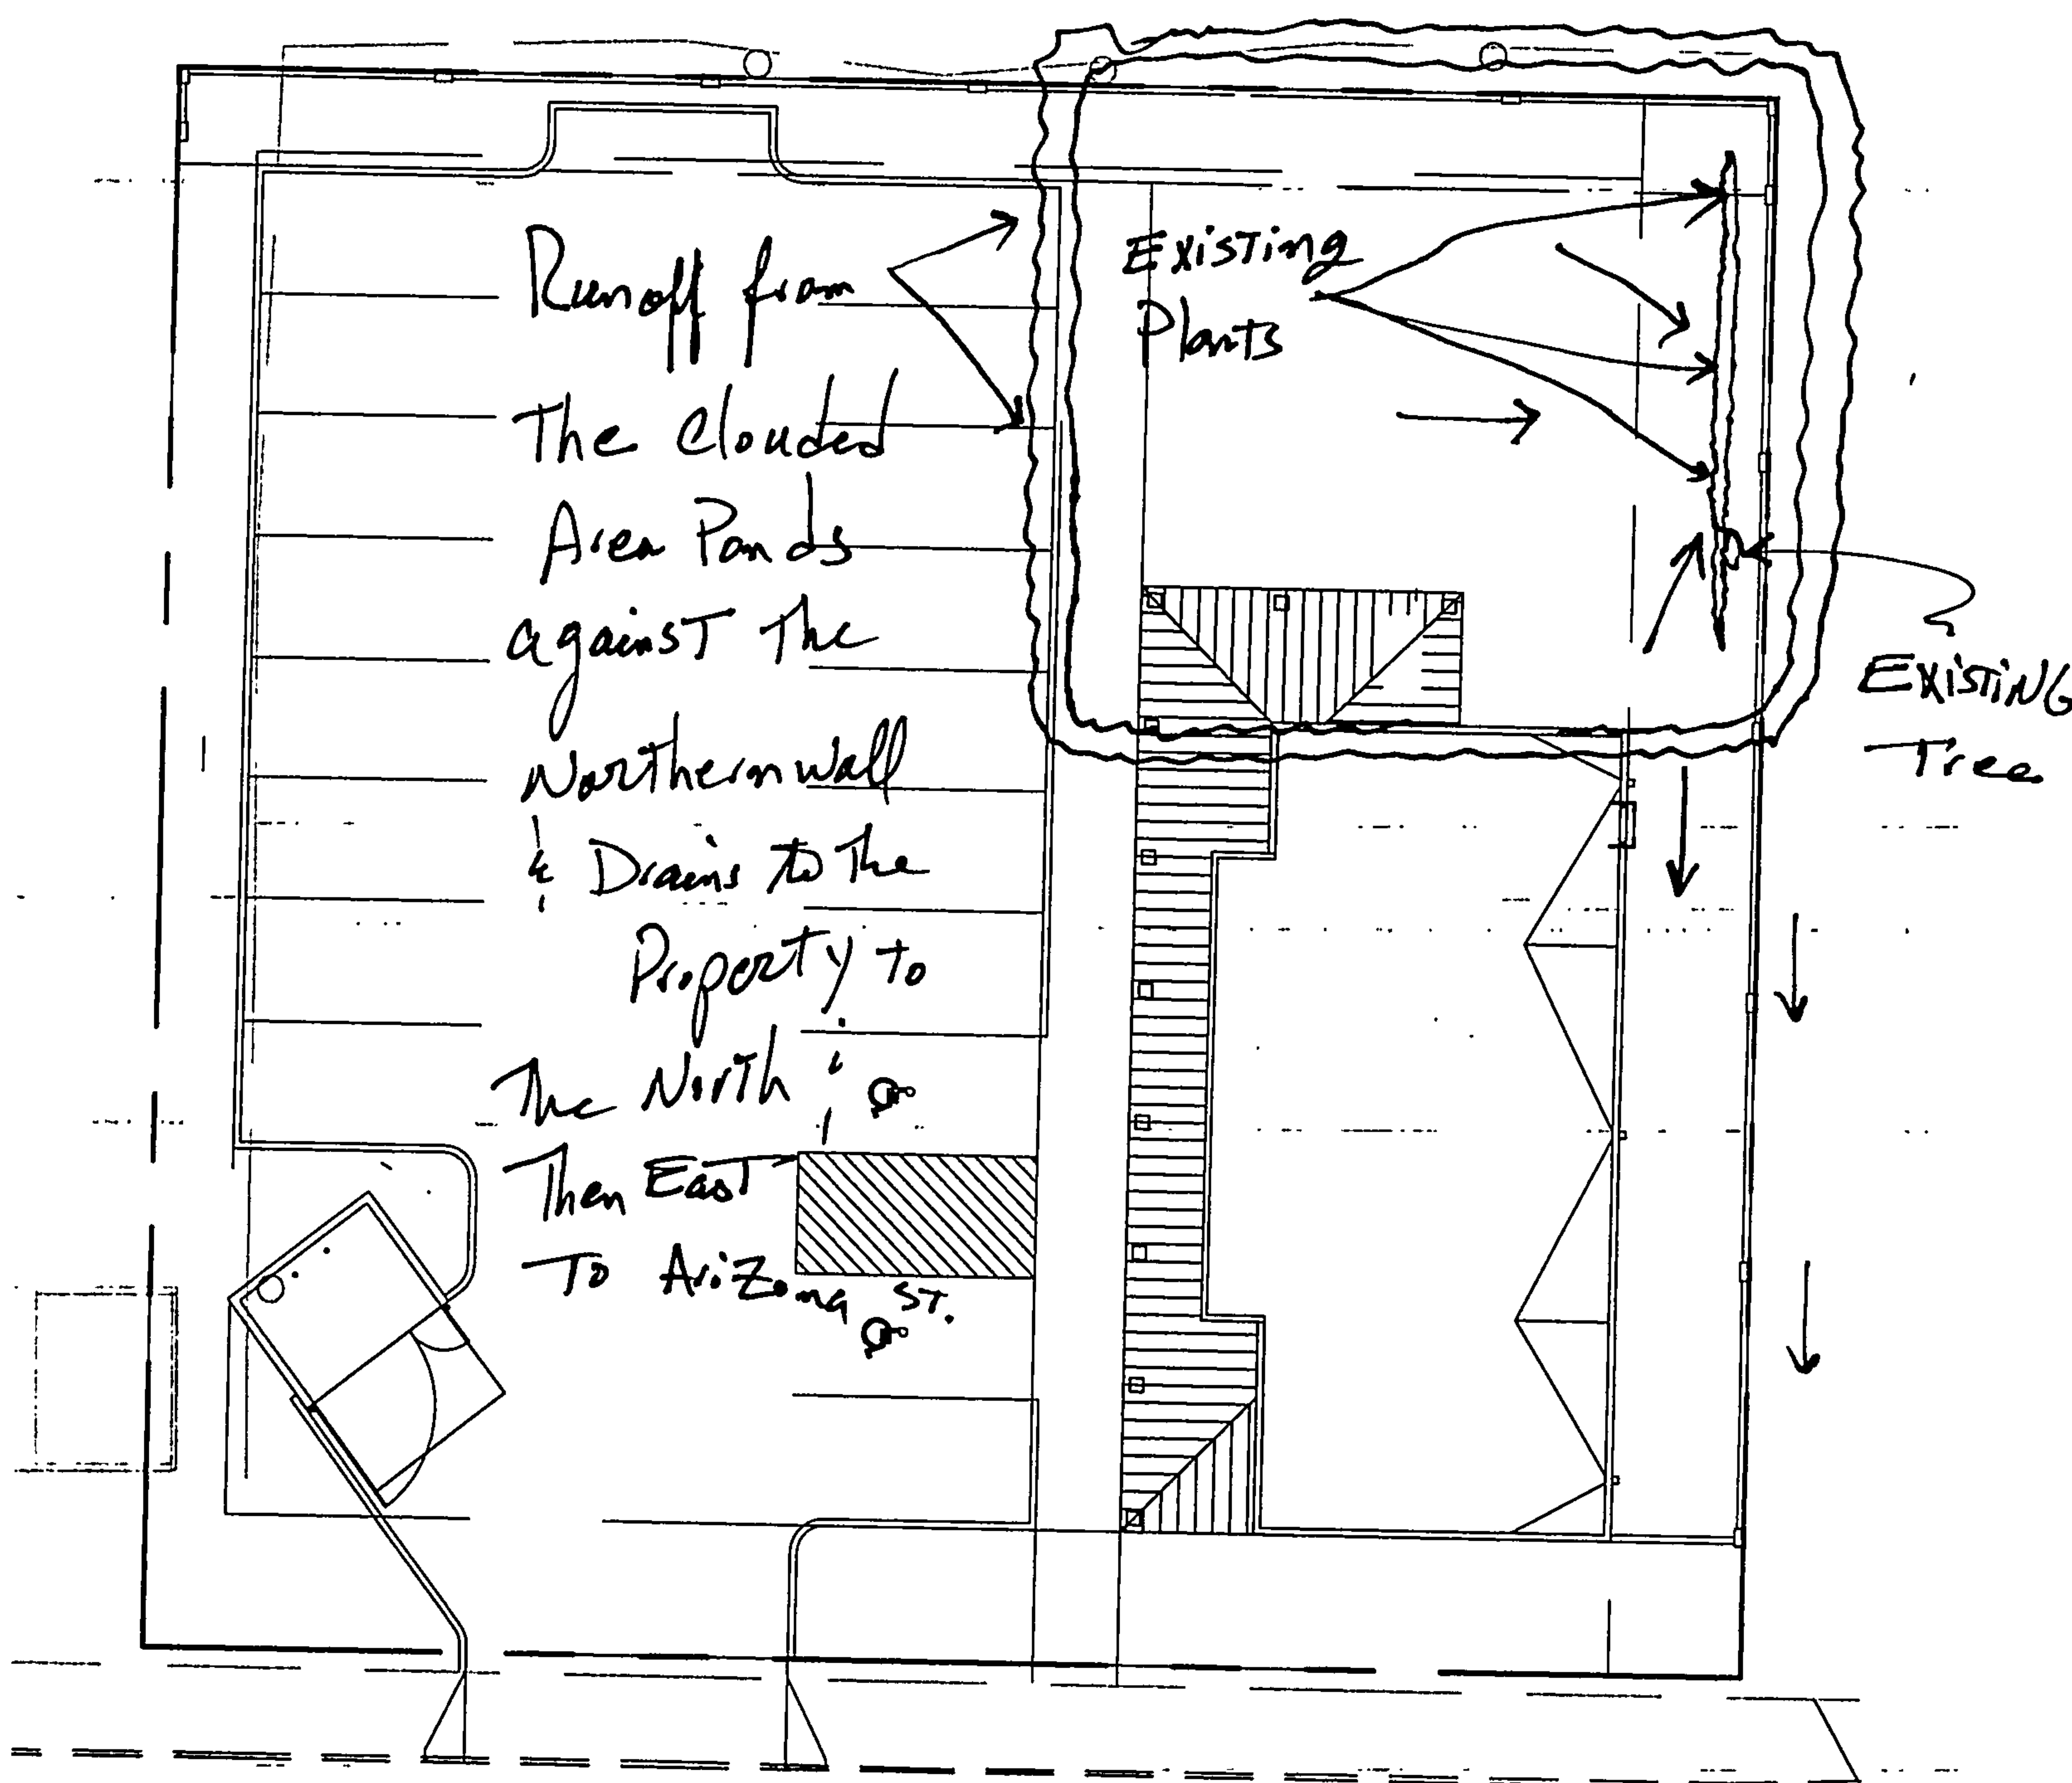 Runoff from
The Clouded
Area Ponds
against The
Northern wall
& Drains to The
Property to
The North ;
Then East
To Arizona St.
Existing
Plants
EXISTING
Tree